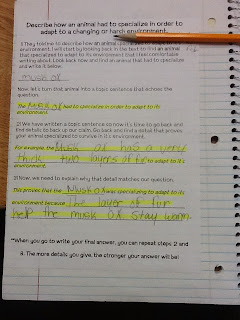 Describe how an animal had to specialize in order to
adapt to a changing or harsh environment.
1) They told me to describe how an animal
environment. I will start by looking back in the text to find an animal
that specialized to adapt to its environment that I feel comfortable
writing about. Look back now and find an animal that had to specialize
and write it below.
musk ox
Now, let's turn that animal into a topic sentence that echoes the
question.
The musk ox had to specialize in order to adapt to its
environment.
2) We have written a topic sentence so now it's time to go back and
find details to back up our claim. Go back and find a detail that proves
your animal specialized to survive in it's environment.
For example the Musk ox has a very
thick two layers of fur to adapt to it's
environment.
3) Now, we need to explain why that detail matches our question.
This proves that the Musk ox was specializing to adapt to its
environment because The layer of fur
help the musk ox stay warm
**When you go to write your final answer, you can repeat steps 2 and
3. The more details you give, the stronger your answer will be!